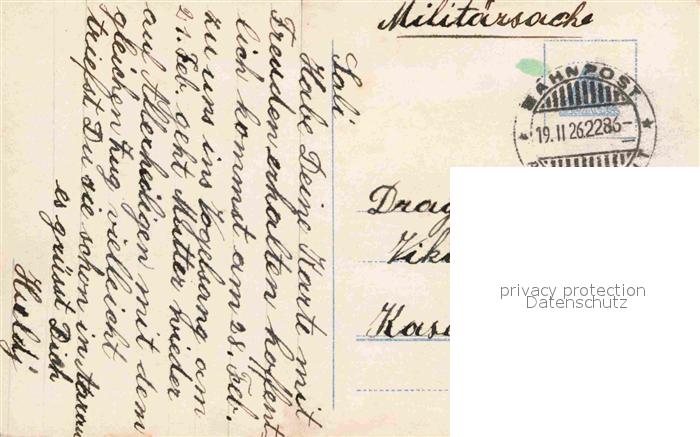 Militärsache
BAHNPOST
19.II.26.2286-
Drag
Vik
Kas
privacy protection
Datenschutz
Sali
Habe Deine Karte mit
Freuden erhalten hoffent-
lich kommst am 28. Feb.
zu uns ins Vogelsang am
21. Feb. geht Mutter wieder
auf Allerheiligen mit dem
gleichen Zug vielleicht
triefst Du sie schon in Aarau
es grüsst Dich